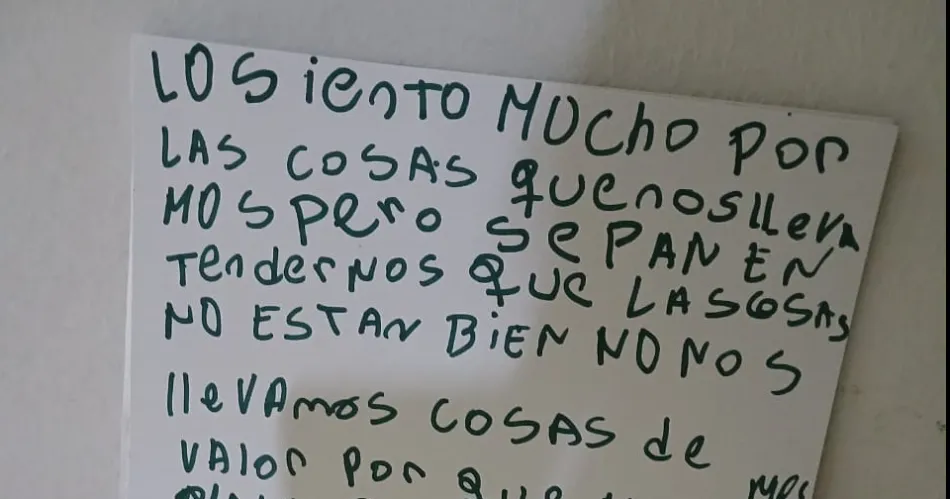 LO SiENTO MUCho POR
LAS COSAS queNOSlleVA
MOS PeRO SePAN EN
TeNdeRNOS QUE LASCOSAS
NO ESTAN BiEN NO NOS
lleVAmOS COSAS de
VAlOR POR QUE